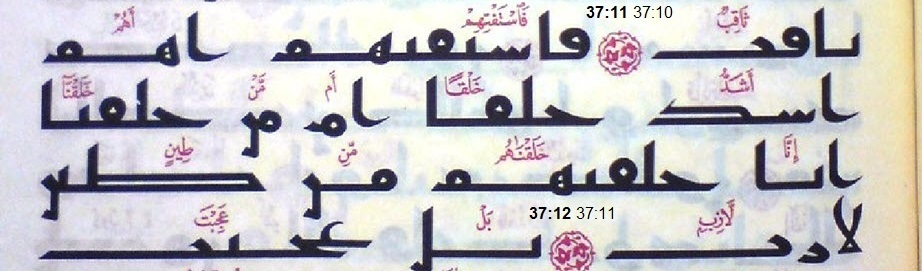 ثَاقِبٌ 37:10 37:11 فَٱسْتَفْتِهِمْ أَهُمْ
ثاقب فاستفتهم اهم
أَشَدُّ خَلْقًا أَم مَّنْ خَلَقْنَآ
اشد خلقا ام من خلقنا
إِنَّا خَلَقْنَٰهُم مِّن طِينٍ
انا خلقنهم من طين
لَّازِبٍ 37:11 37:12 بَلْ عَجِبْتَ
لازب بل عجبت